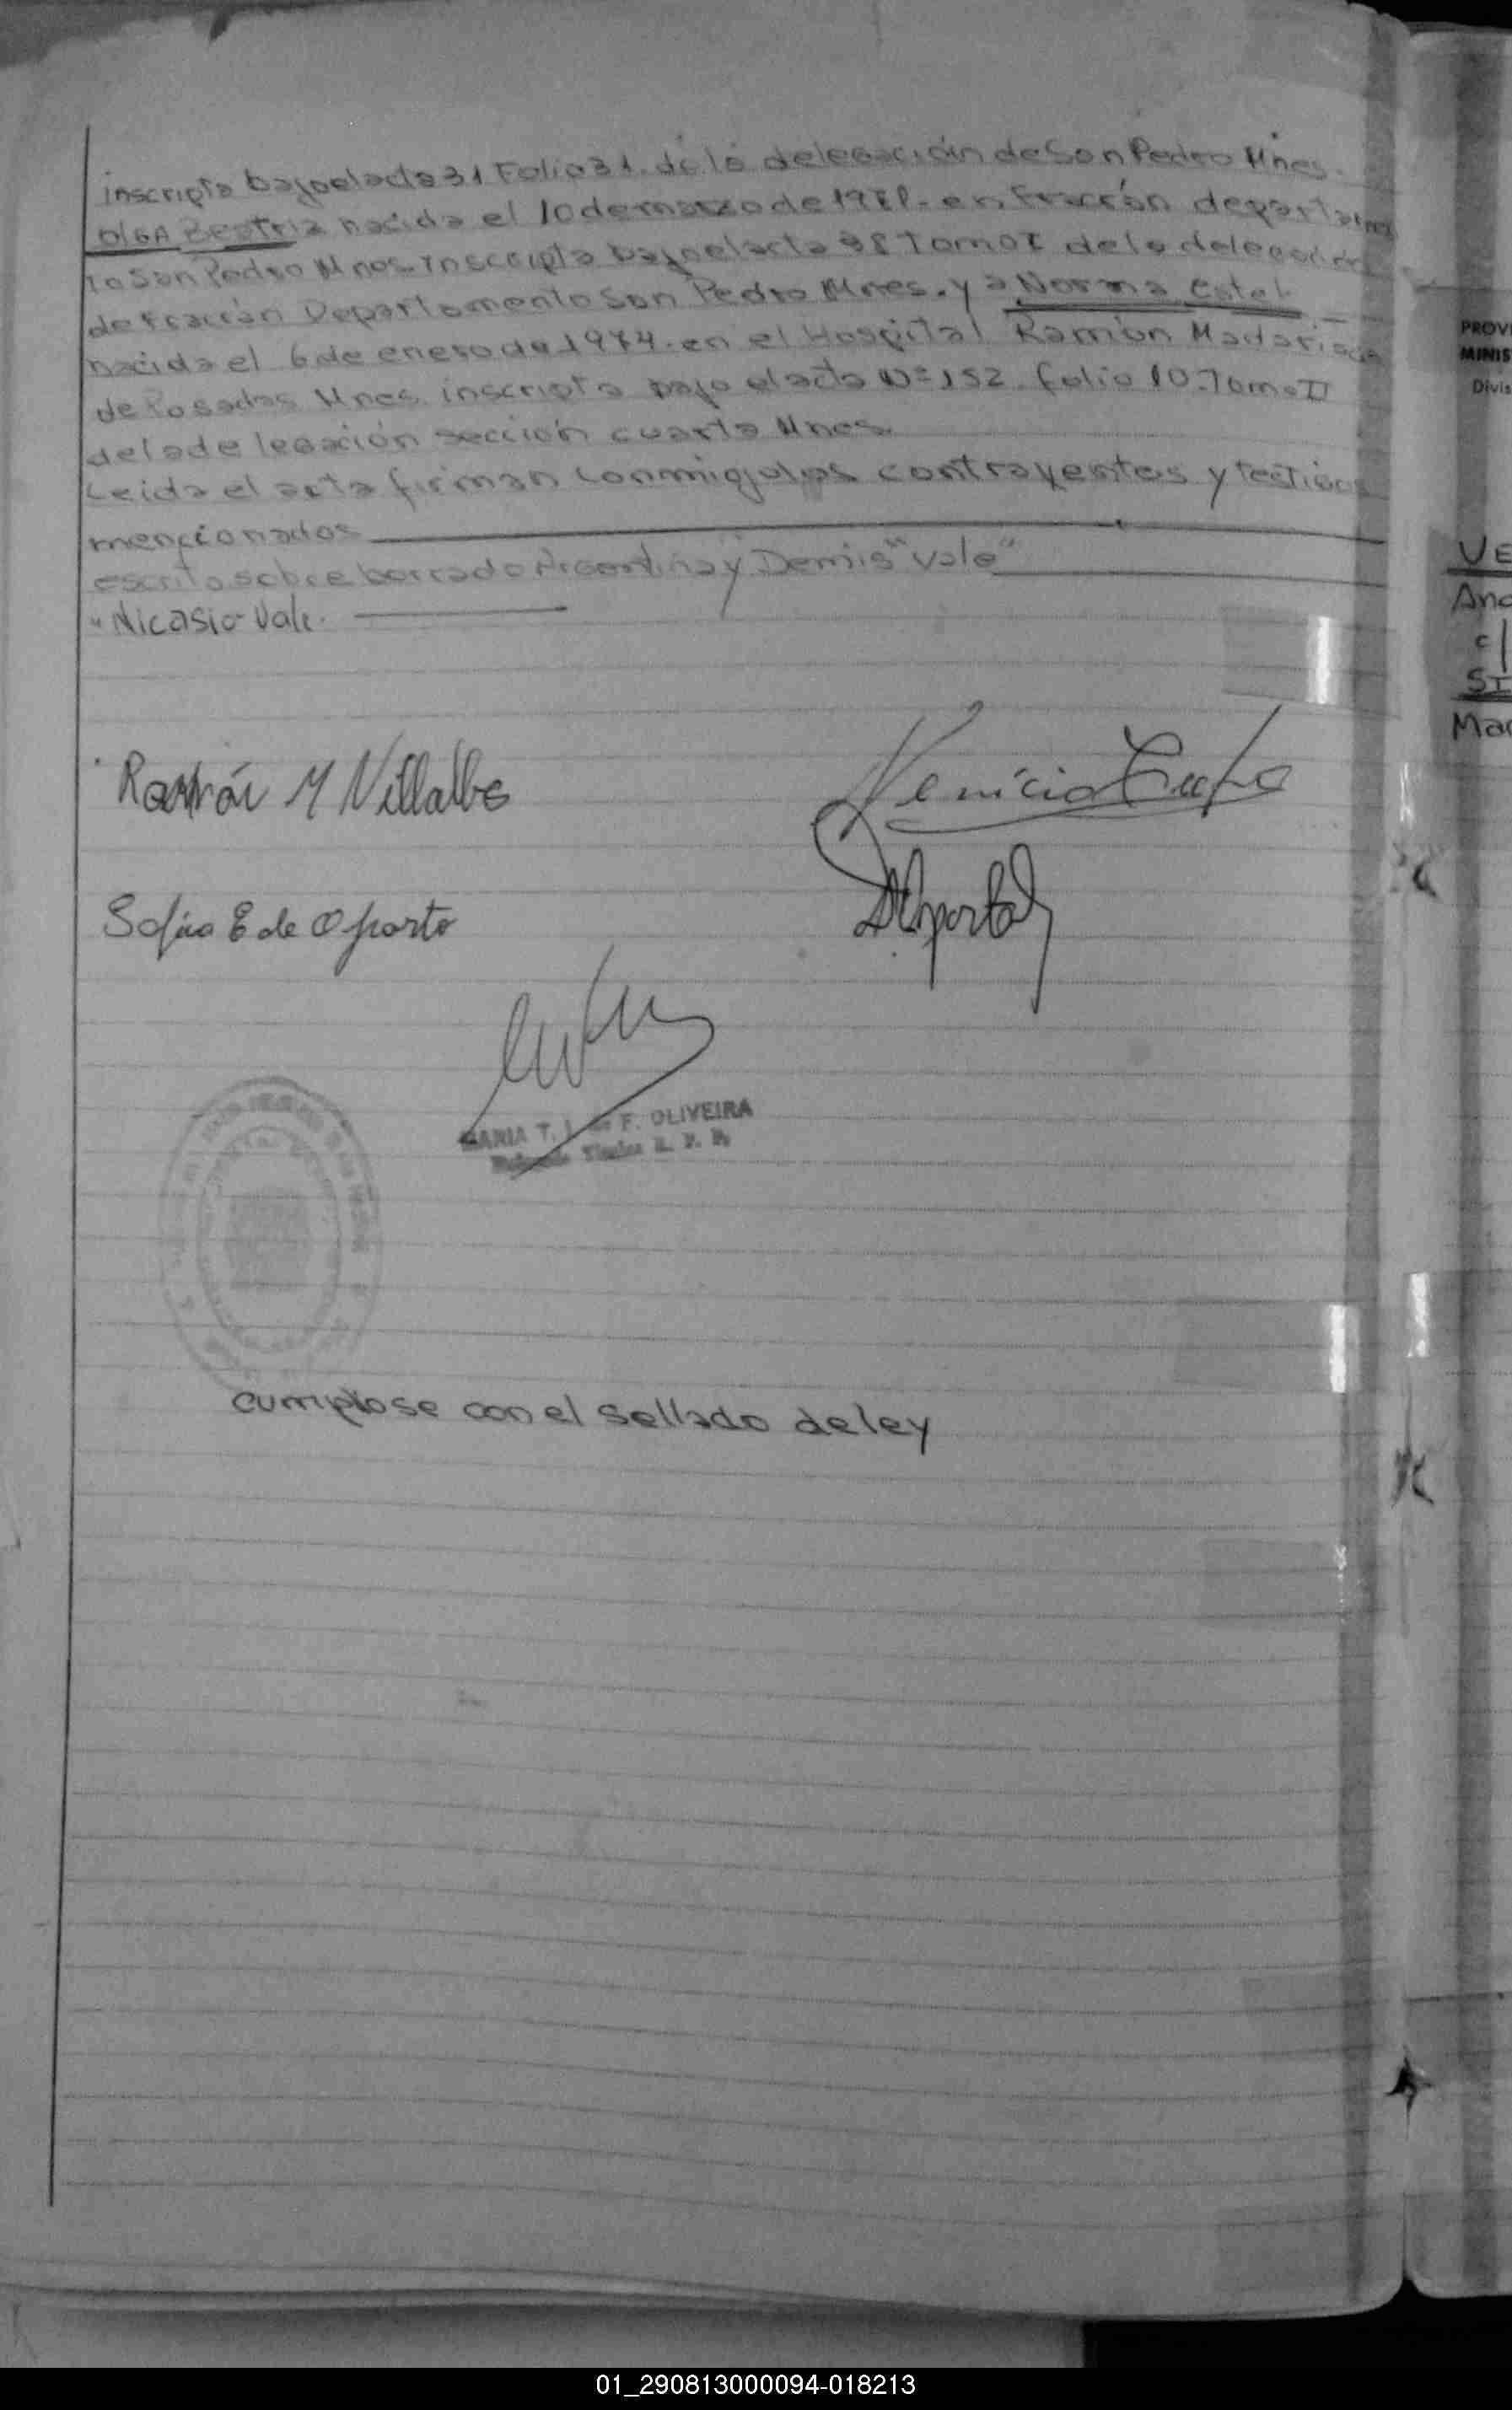 inscripta bajo el acta 31 Folio 31. de la delegación de San Pedro Mnes.
Olga Beatriz nacida el 10 de marzo de en Fracrán departamen
to San Pedro Mnes inscripta bajo el acta Tomo I de la delegación
de Fracrán Departamento San Pedro Mnes. y a Norma Estel
nacida el 6 de enero de 1974. en el Hospital Ramón Madariaga
de Posadas Mnes. inscripta bajo el acta Nº 152 folio 10. Tomo II
de la delegación sección cuarta Mnes.
Leida el acta firman conmigo los contrayentes y testigos
mencionados
escrito sobre borrado Argentina y Demis "vale"
" Nicasio vale.
Ramón M Villalba
Sofía E de Oporto
MARIA T. F. OLIVEIRA
Titular R. P. P.
cumplase con el sellado de ley
PROV
MINIS
Divis
VE
Ana
c/
SI
Mar
01_290813000094-018213